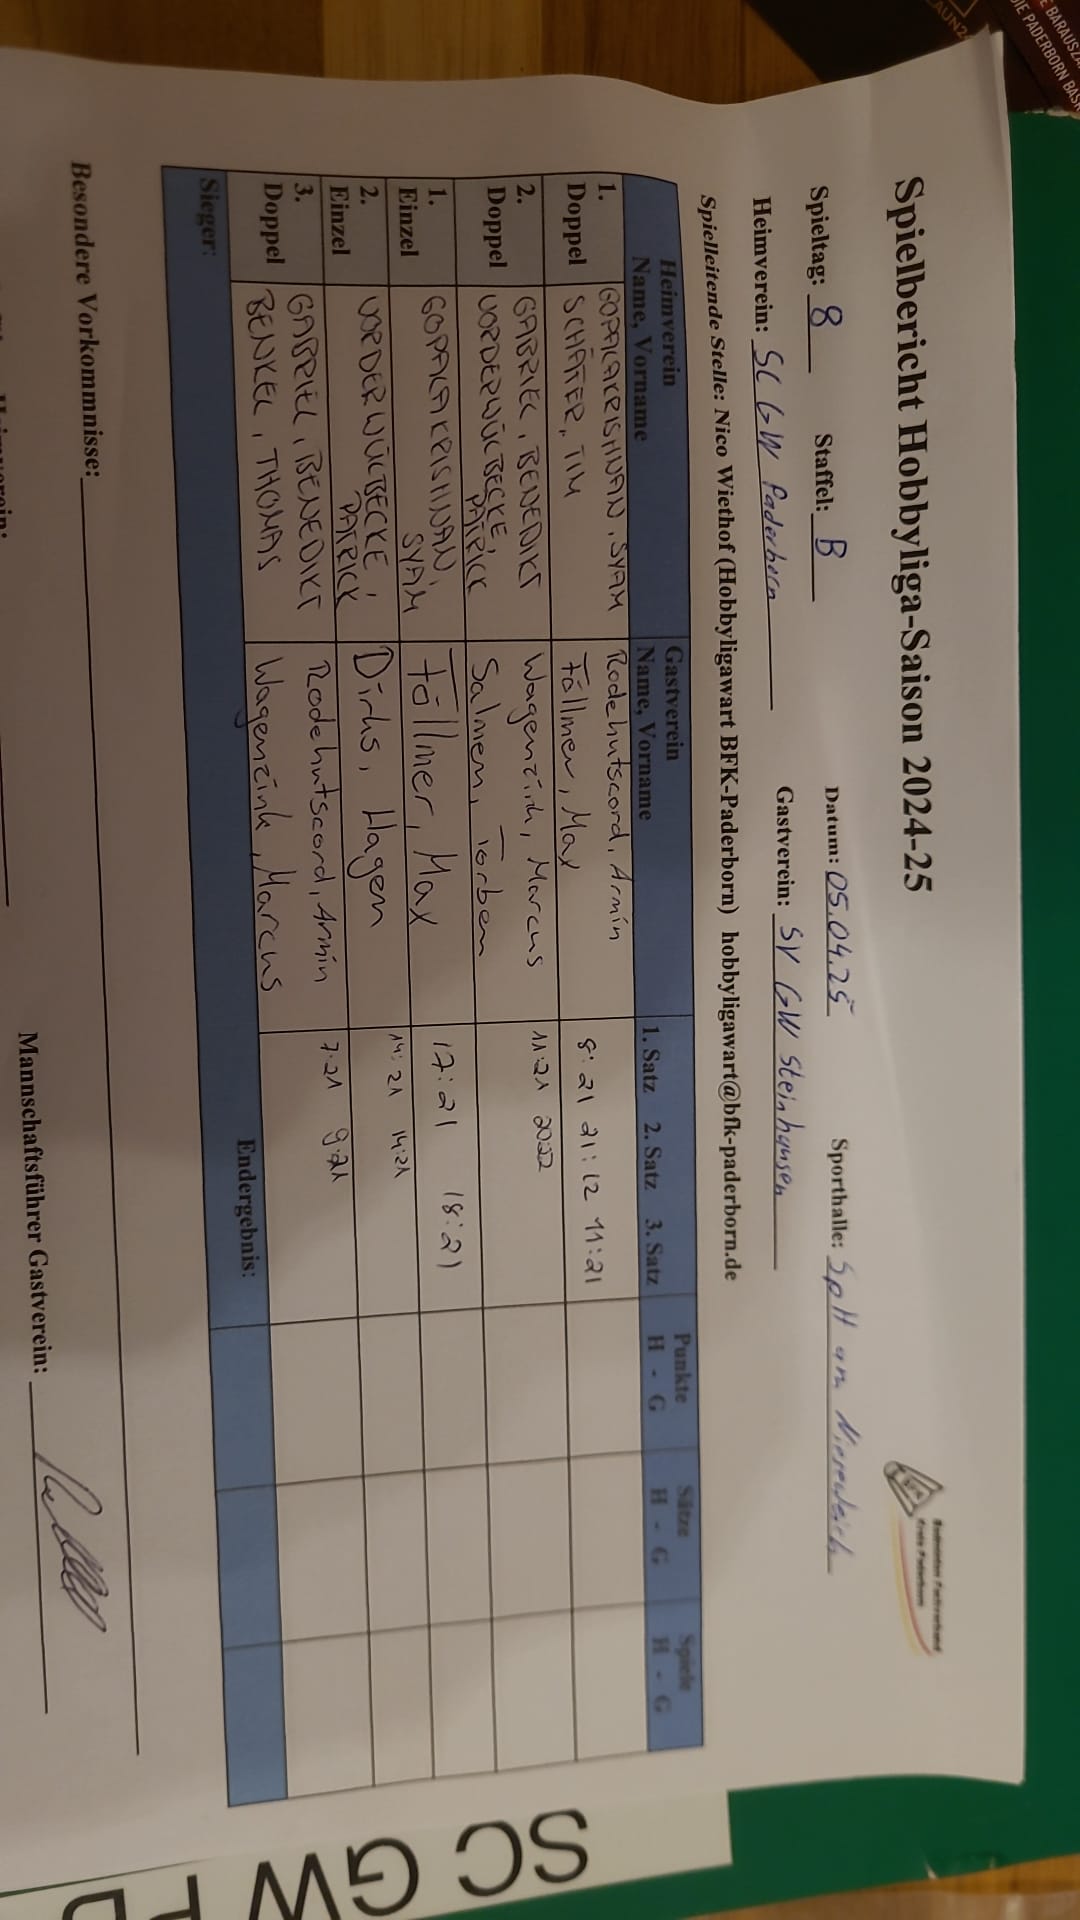 Spielbericht Hobbyliga-Saison 2024-25
Badminton Fachverband
Kreis Paderborn
Spieltag: 8 Staffel: B Datum: 05.04.25 Sporthalle: SpH am Niesenteich
Heimverein: SC GW Paderborn Gastverein: SV GW Steinhausen
Spielleitende Stelle: Nico Wiethof (Hobbyligawart BFK-Paderborn) hobbyligawart@bfk-paderborn.de
Heimverein Gastverein Punkte Sätze Spiele
Name, Vorname Name, Vorname 1. Satz 2. Satz 3. Satz H - G H - G H - G
1. GOPALAKRISHNAN, SYAM Rodehutscord, Armin
Doppel SCHÄFER, TIM Föllmer, Max 8:21 21:12 11:21
2. GABRIEL, BENEDIKT Wagenzink, Marcus 11:21 20:22
Doppel VORDERWÜLBECKE, PATRICK Salmen, Torben
1. GOPALAKRISHNAN, Föllmer, Max 17:21 18:21
Einzel SYAM
2. VORDERWÜLBECKE, Dirks, Hagen 14:21 14:21
Einzel PATRICK
3. GABRIEL, BENEDIKT Rodehutscord, Armin 7:21 9:21
Doppel BENKEL, THOMAS Wagenzink, Marcus
Sieger: Endergebnis:
Besondere Vorkommnisse:
Mannschaftsführer Gastverein:
SC GW